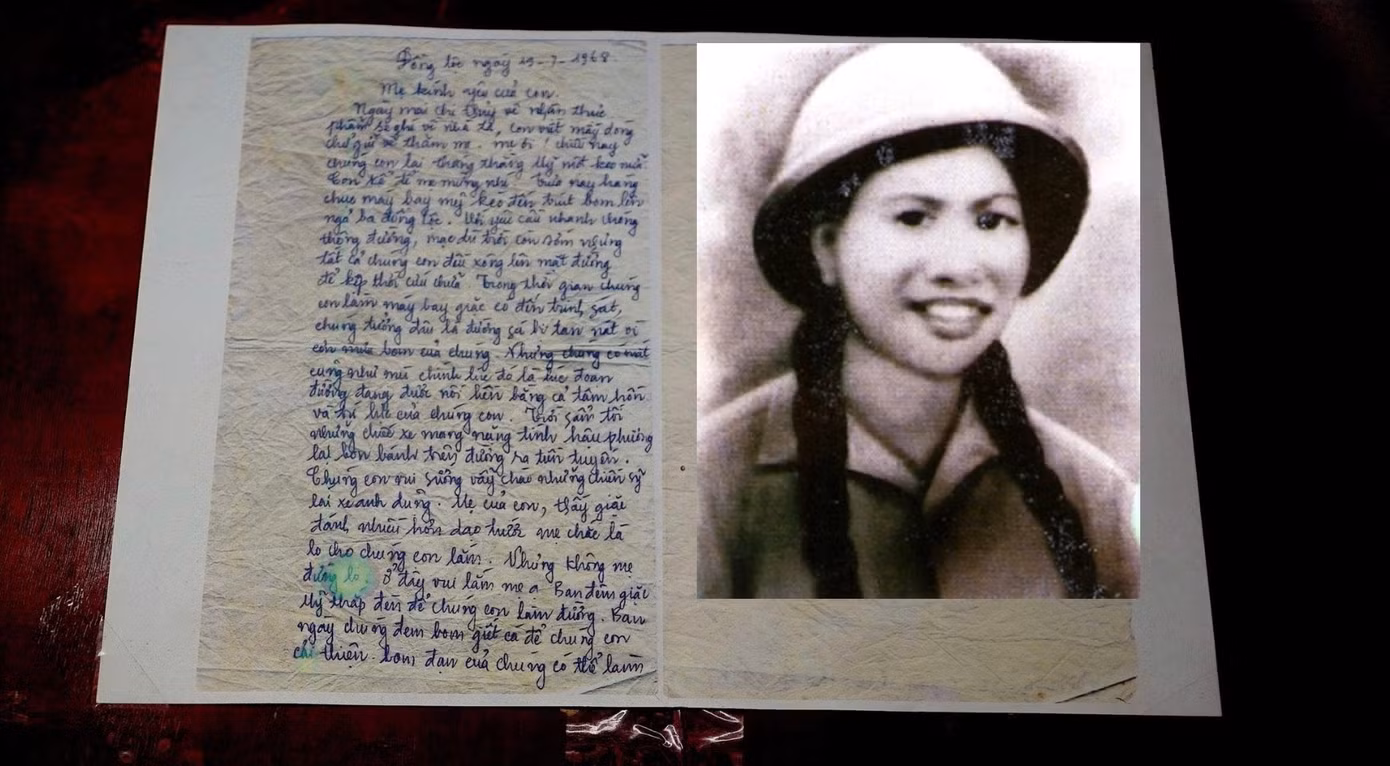 Đồng lộc ngày 19-7-1968
Mẹ kính yêu của con.
Ngày mai chị về nhận thực
phẩm sẽ ghé về nhà tê, con viết mấy dòng
chữ gửi về thăm mẹ. mẹ ơi! chiều nay
chúng con lại thắng thằng Mỹ một keo nữa
Con kể để mẹ mừng nhé. Trưa nay hàng
chục máy bay mỹ kéo đến trút bom lên
ngã ba đồng lộc. Với yêu cầu nhanh chóng
thông đường, mặc dù trời còn sớm nhưng
tất cả chúng con đều xông lên mặt đường
để kịp thời cứu chữa Trong thời gian chúng
con làm máy bay giặc có đến trinh sát,
chúng tưởng đâu là đường sá bị tan nát vì
cơn mưa bom của chúng. Nhưng chúng có mắt
cũng như mù chính lúc đó là lúc đoạn
đường đang được nối liền bằng cả tâm hồn
và trí lực của chúng con. Trời sẩm tối
những chiếc xe mang nặng tình hậu phương
lại bon bánh trên đường ra tiền tuyến.
Chúng con vui sướng vẫy chào những chiến sỹ
lái xe anh dũng. Mẹ của con, thấy giặc
đánh nhiều hơn dạo trước mẹ chắc là
lo cho chúng con lắm. Nhưng không mẹ
đừng lo. ở đây vui lắm mẹ ạ Ban đêm giặc
Mỹ thắp đèn để chúng con làm đường. Ban
ngày chúng đem bom giết cá để chúng con
cải thiện. bom đạn của chúng có thể làm